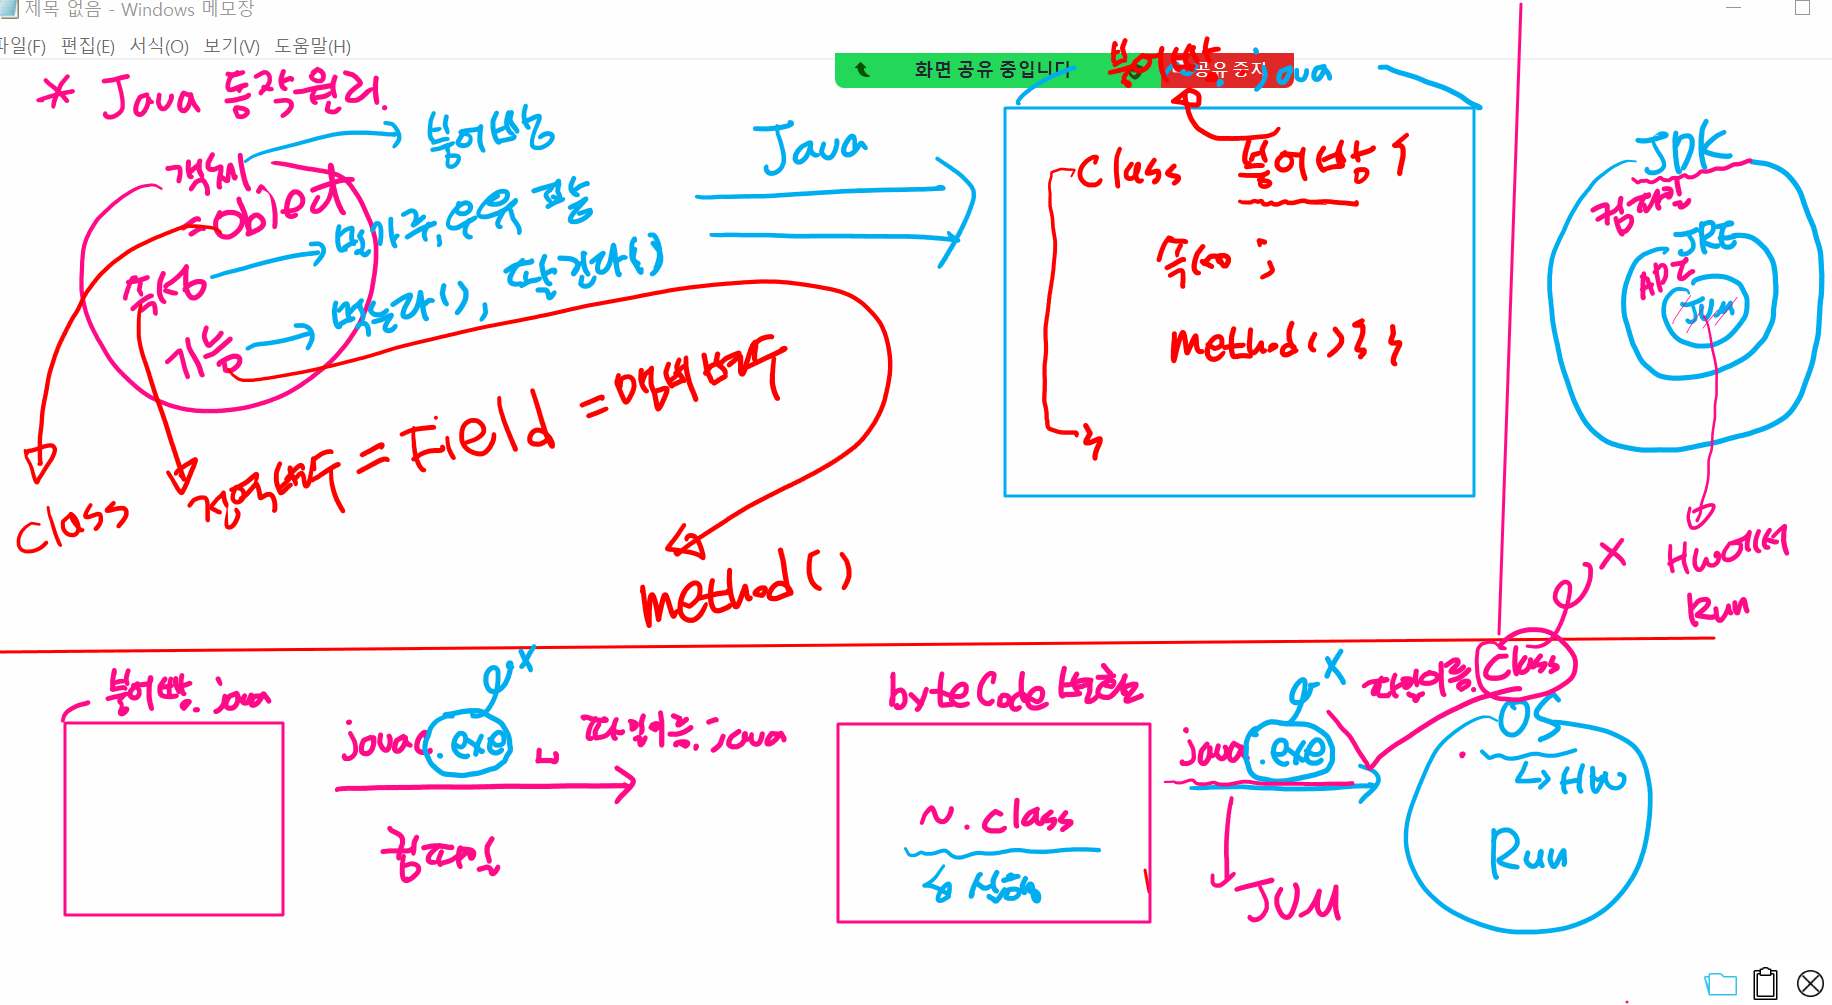 제목 없음 - Windows 메모장
파일(F) 편집(E) 서식(O) 보기(V) 도움말(H)
화면 공유 중입니다
공유 중지
* Java 동작원리.
객체 → 붕어빵
=Object
속성 → 밀가루, 우유, 팥
기능 → 먹는다(), 팔린다()
class
전역변수 = Field = 멤버변수
method()
Java
붕어빵.java
Class 붕어빵 {
속성 ;
method(){ }
}
JDK
컴파일
JRE
API
JVM
HW에서
Run
붕어빵.java
javac.exe ␣ 파일이름.java
x
컴파일
byteCode 변환
~.class
↳ 실행
java.exe
x
파일이름.class
x
JVM
OS
↳ HW
Run